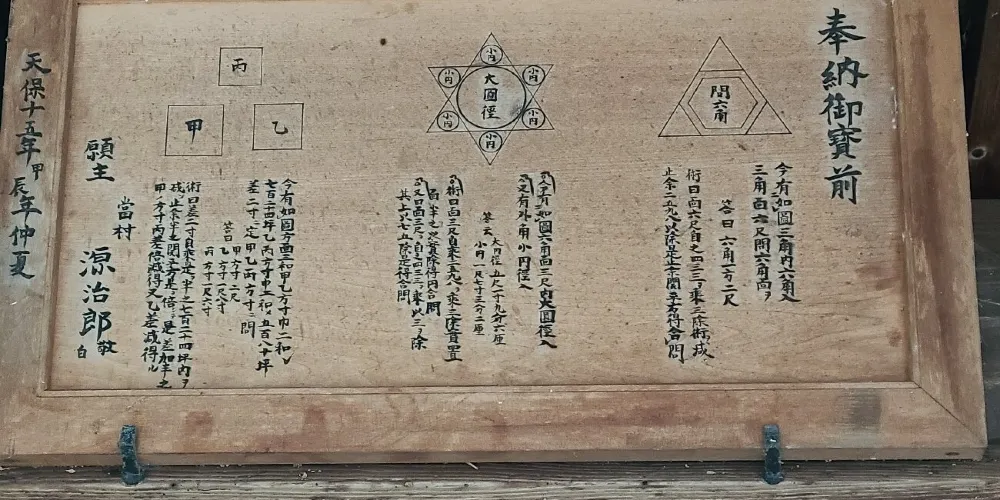 奉納御寳前
問六角
今有如圖三角內六角入
三角面六尺問六角面ヲ
答曰 六角一方二尺
術曰面六尺自之四三ヲ乗三除術
止余二五九八以除是正余開平方得合問
大圓径
小円
小円
小円
小円
小円
小円
今有如圖六角面三尺内大圓径入
又有外角小円径入
答云 大円径 五尺一寸九分六厘
小円 一尺七寸三分二厘
術曰面三尺自乗
得円合問
又曰面三尺自之四三ヲ乗以三ヲ除
其上以七五除是得合問
丙
甲
乙
今有如圖方面三和甲乙方寸巾二和シ
七百二十四坪乙丙方寸巾二和シ五百八十坪
差二寸ヅツ定甲乙丙方寸ヲ問
答曰 甲方寸二尺
乙方寸一尺八寸
丙方寸一尺六寸
術曰差二寸自乗是ヲ半之七百二十四坪内ヲ
減止余半之開平方是差加半之
甲ノ方寸丙差倍減得又乙差減得ル
願主
當村
源治郎
敬白
天保十五年甲辰年仲夏